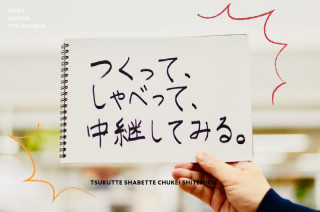 つくって、
しゃべって、
中継してみる。
TSUKUTTE SHABETTE CHUKEI SHITEMIRU